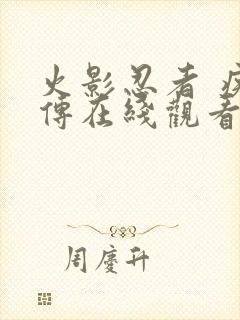 火影忍者 疾
傳在綫觀看
周慶升